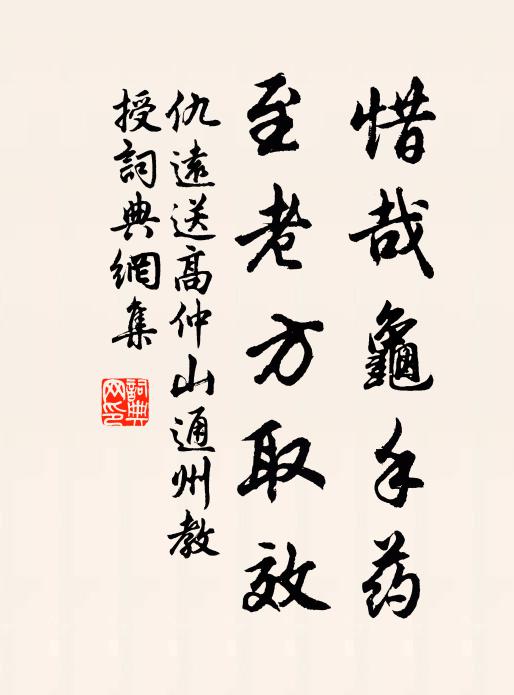 惜哉龜手药
至老方取效
仇遠送高仲山通州教
授詞典網集
詞典
网印